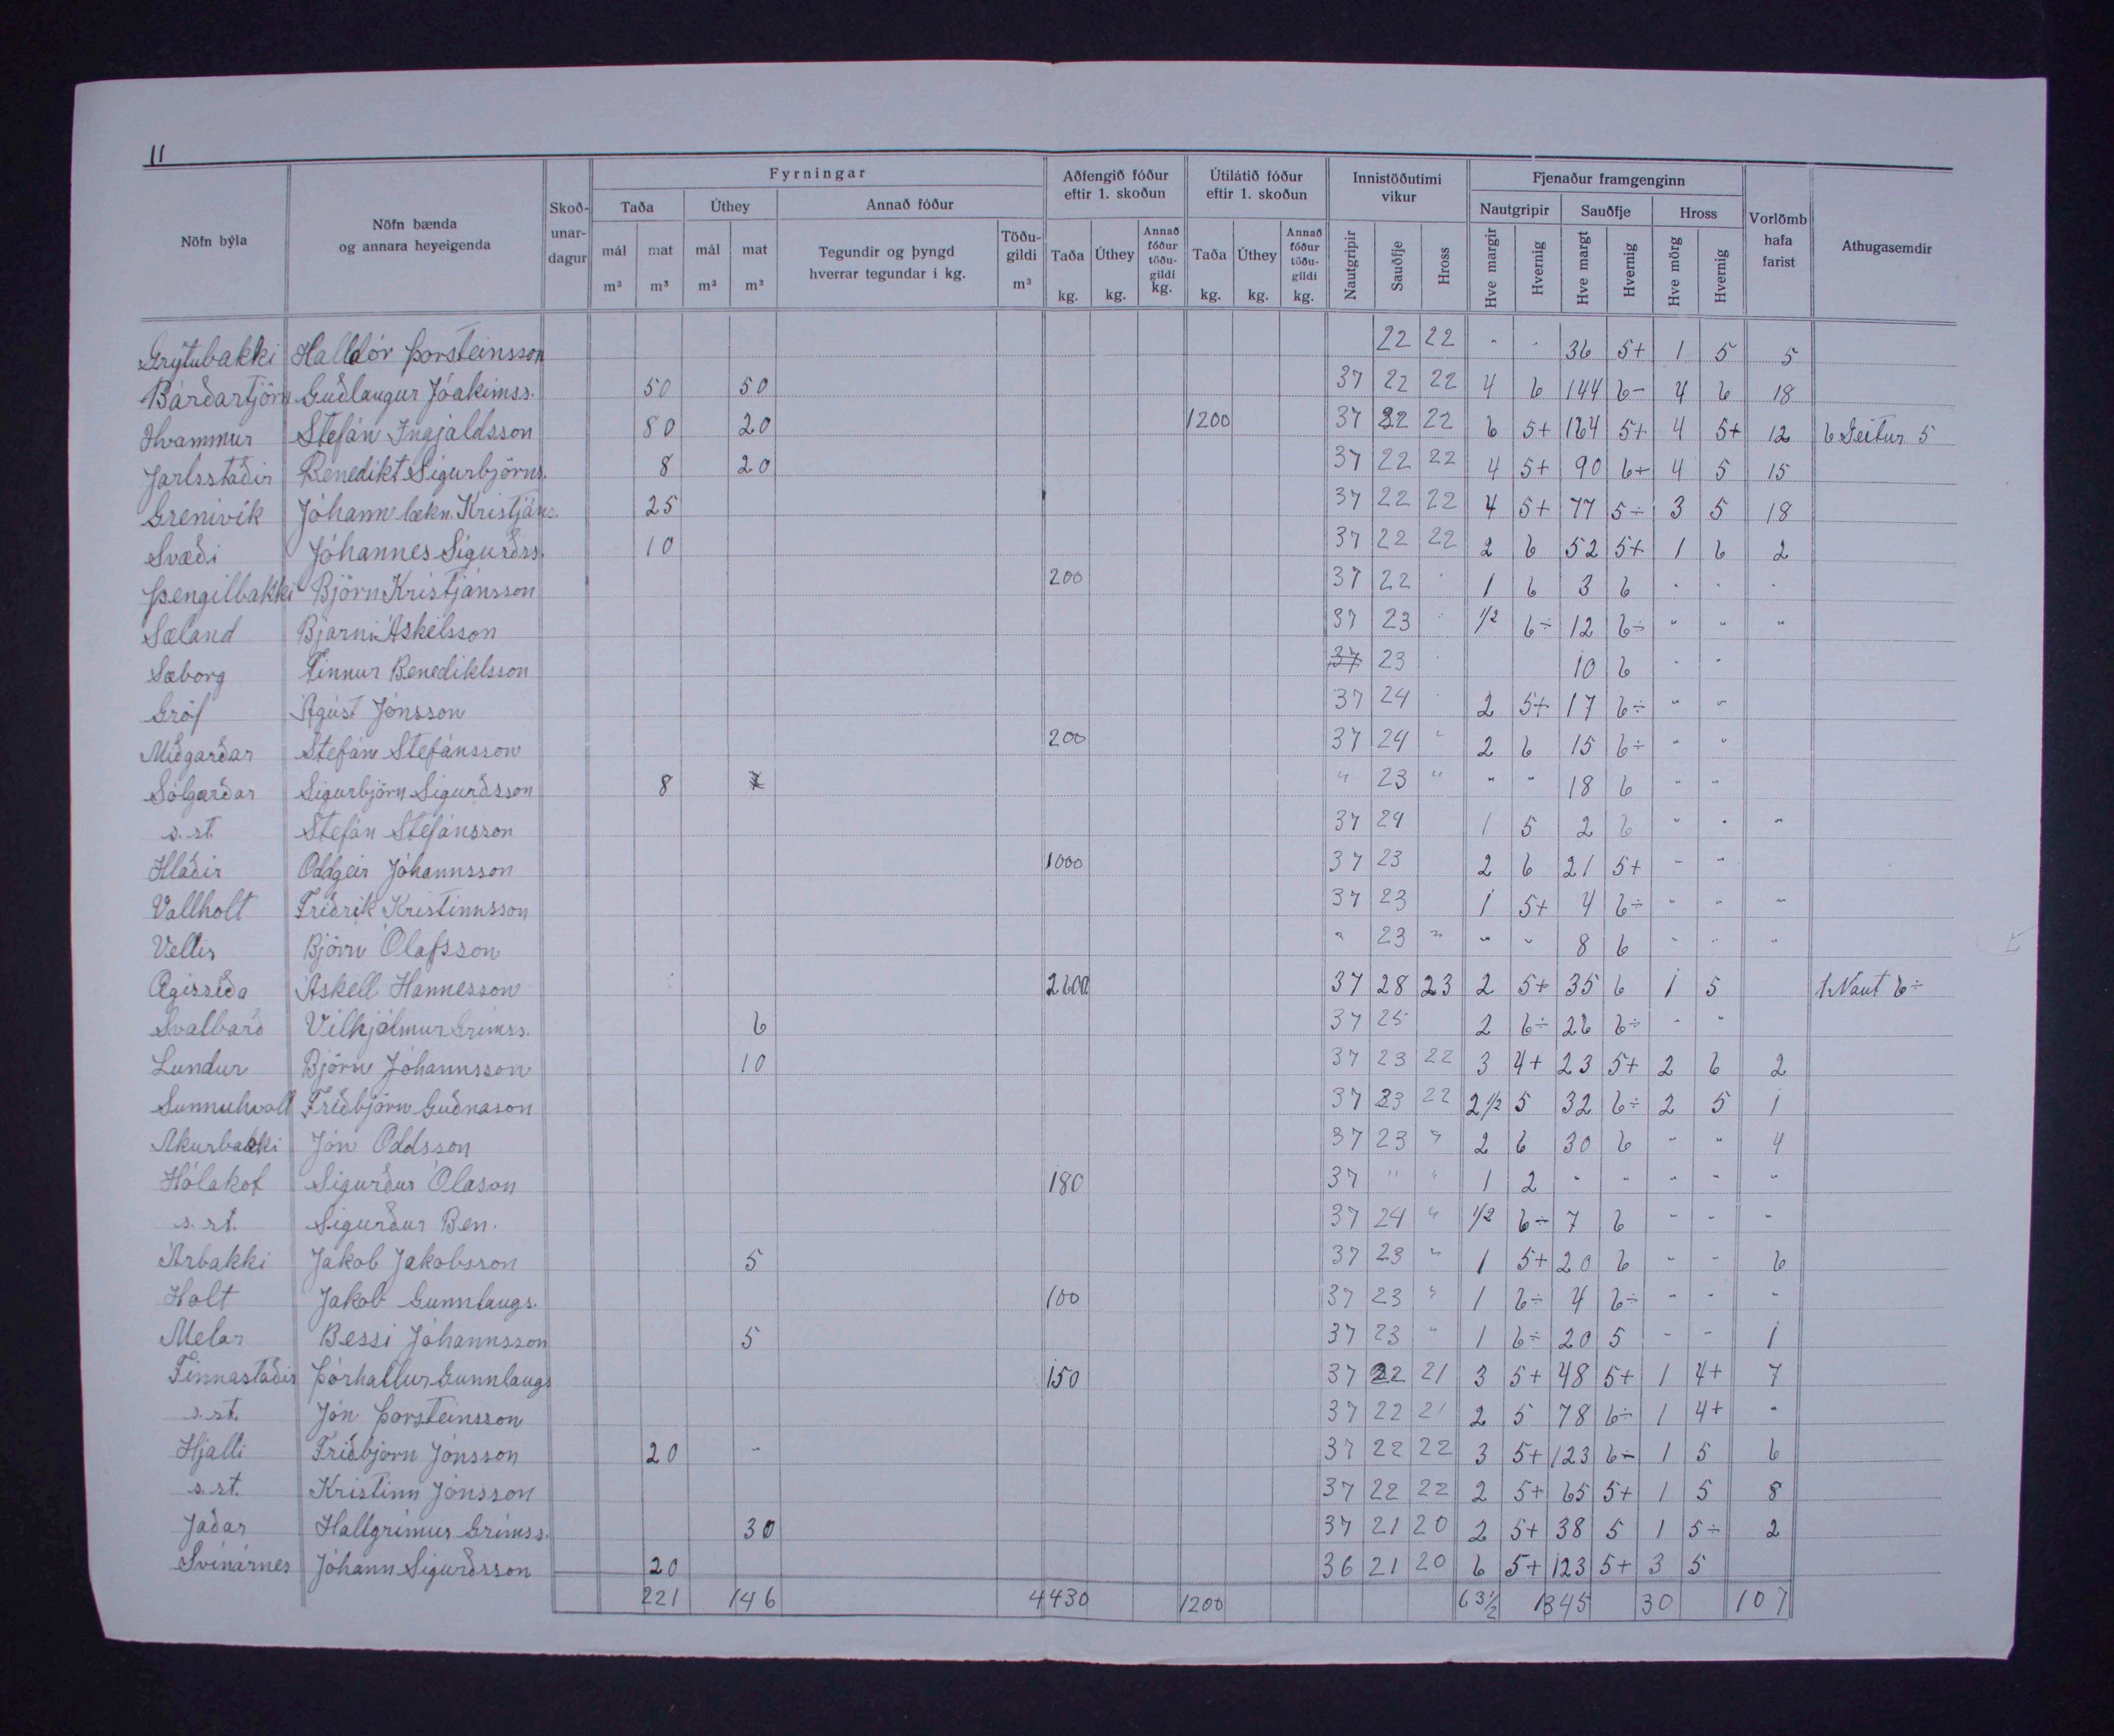 11
Nöfn býla | Nöfn bænda og annara heyeigenda | Skoð-unar-dagur | Fyrningar | Aðfengið fóður eftir 1. skoðun | Útilátið fóður eftir 1. skoðun | Innistöðutími vikur | Fjenaður framgenginn | Vorlömb hafa farist | Athugasemdir
Taða | Úthey | Annað fóður | Nautgripir | Sauðfje | Hross
mál m³ | mat m³ | mál m³ | mat m³ | Tegundir og þyngd hverrar tegundar í kg. | Töðu-gildi m³ | Taða kg. | Úthey kg. | Annað fóður töðu-gildi kg. | Taða kg. | Úthey kg. | Annað fóður töðu-gildi kg. | Nautgripir | Sauðfje | Hross | Hve margir | Hvernig | Hve margt | Hvernig | Hve mörg | Hvernig
Grýtubakki Halldór Þorsteinsson 22 22 " " 36 5+ 1 5 5
Bárðartjörn Guðlaugur Jóakimss. 50 50 37 22 22 4 6 144 6- 4 6 18
Hvammur Stefán Ingjaldsson 80 20 1200 37 22 22 6 5+ 164 5+ 4 5+ 12 6 Geitur 5
Jarlsstaðir Benedikt Sigurbjörns. 8 20 37 22 22 4 5+ 90 6÷ 4 5 15
Grenivík Jóhann lækn. Kristjáns. 25 37 22 22 4 5+ 77 5÷ 3 5 18
Svæði Jóhannes Sigurðss. 10 37 22 22 2 6 52 5+ 1 6 2
Þengilbakki Björn Kristjánsson 200 37 22 " 1 6 3 6 " " "
Sæland Bjarni Áskelsson 37 23 " 1/2 6÷ 12 6÷ " " "
Sæborg Finnur Benediktsson 37 23 " 10 6 " "
Gröf Ágúst Jónsson 37 24 " 2 5+ 17 6÷ " "
Miðgarðar Stefán Stefánsson 200 37 24 " 2 6 15 6÷ " "
Sólgarðar Sigurbjörn Sigurðsson 8 " 23 " " " 18 6 " "
s. st. Stefán Stefánsson 37 24 1 5 2 6 " " "
Hlaðir Oddgeir Jóhannsson 1000 37 23 2 6 21 5+ " "
Vallholt Friðrik Kristinnsson 37 23 1 5+ 4 6÷ " " "
Vellir Björn Ólafsson " 23 " " " 8 6 " " "
Ægissíða Áskell Hannesson 2600 37 28 23 2 5+ 35 6 1 5 1 Naut 6÷
Svalbarð Vilhjálmur Grímss. 6 37 25 2 6÷ 26 6÷ " "
Lundur Björn Jóhannsson 10 37 23 22 3 4+ 23 5+ 2 6 2
Sunnuhvoll Friðbjörn Guðnason 37 23 22 2 1/2 5 32 6÷ 2 5 1
Akurbakki Jón Oddsson 37 23 " 2 6 30 6 " " 4
Hólakot Sigurður Ólason 180 37 " " 1 2 " " " " "
s. st. Sigurður Ben. 37 24 " 1/2 6÷ 7 6 " " "
Árbakki Jakob Jakobsson 5 37 23 " 1 5+ 20 6 " " 6
Holt Jakob Gunnlaugs. 100 37 23 " 1 6÷ 4 6÷ " " "
Melar Bessi Jóhannsson 5 37 23 " 1 6÷ 20 5 " " 1
Finnastaðir Þórhallur Gunnlaugs 150 37 22 21 3 5+ 48 5+ 1 4+ 7
s. st. Jón Þorsteinsson 37 22 21 2 5 78 6÷ 1 4+ "
Hjalli Friðbjörn Jónsson 20 " 37 22 22 3 5+ 123 6÷ 1 5 6
s. st. Kristinn Jónsson 37 22 22 2 5+ 65 5+ 1 5 8
Jaðar Hallgrímur Grímss. 30 37 21 20 2 5+ 38 5 1 5÷ 2
Svínárnes Jóhann Sigurðsson 20 36 21 20 6 5+ 123 5+ 3 5
221 146 4430 1200 63 1/2 1345 30 107